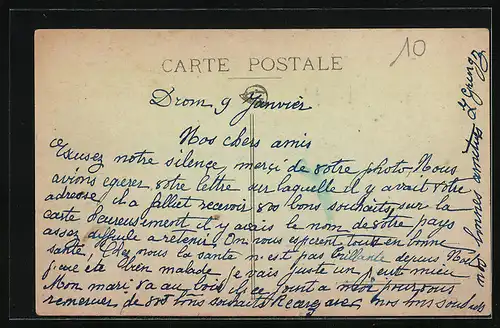 CARTE POSTALE
10
Drom 9 Janvier
Nos chers amis
Excusez notre silence, merçi de votre photo, Nous
avions egerer votre lettre sur laquelle il y avait votre
adresse, il a fallut recevoir vos bons souhaits sur la
carte heureusement il y avais le nom de votre pays
assez difficile a retenir. On vous esperent tout en bonne
santé, Chez nous la santé n'est pas brillante depuis Noël
j'ue été bien malade, je vais juste un peut mieu
Mon mari va au bois il se joint a moi pour vous
remercier de vos bons souhaits Recevez avec nos bons souhaits
nos bonnes amitiés